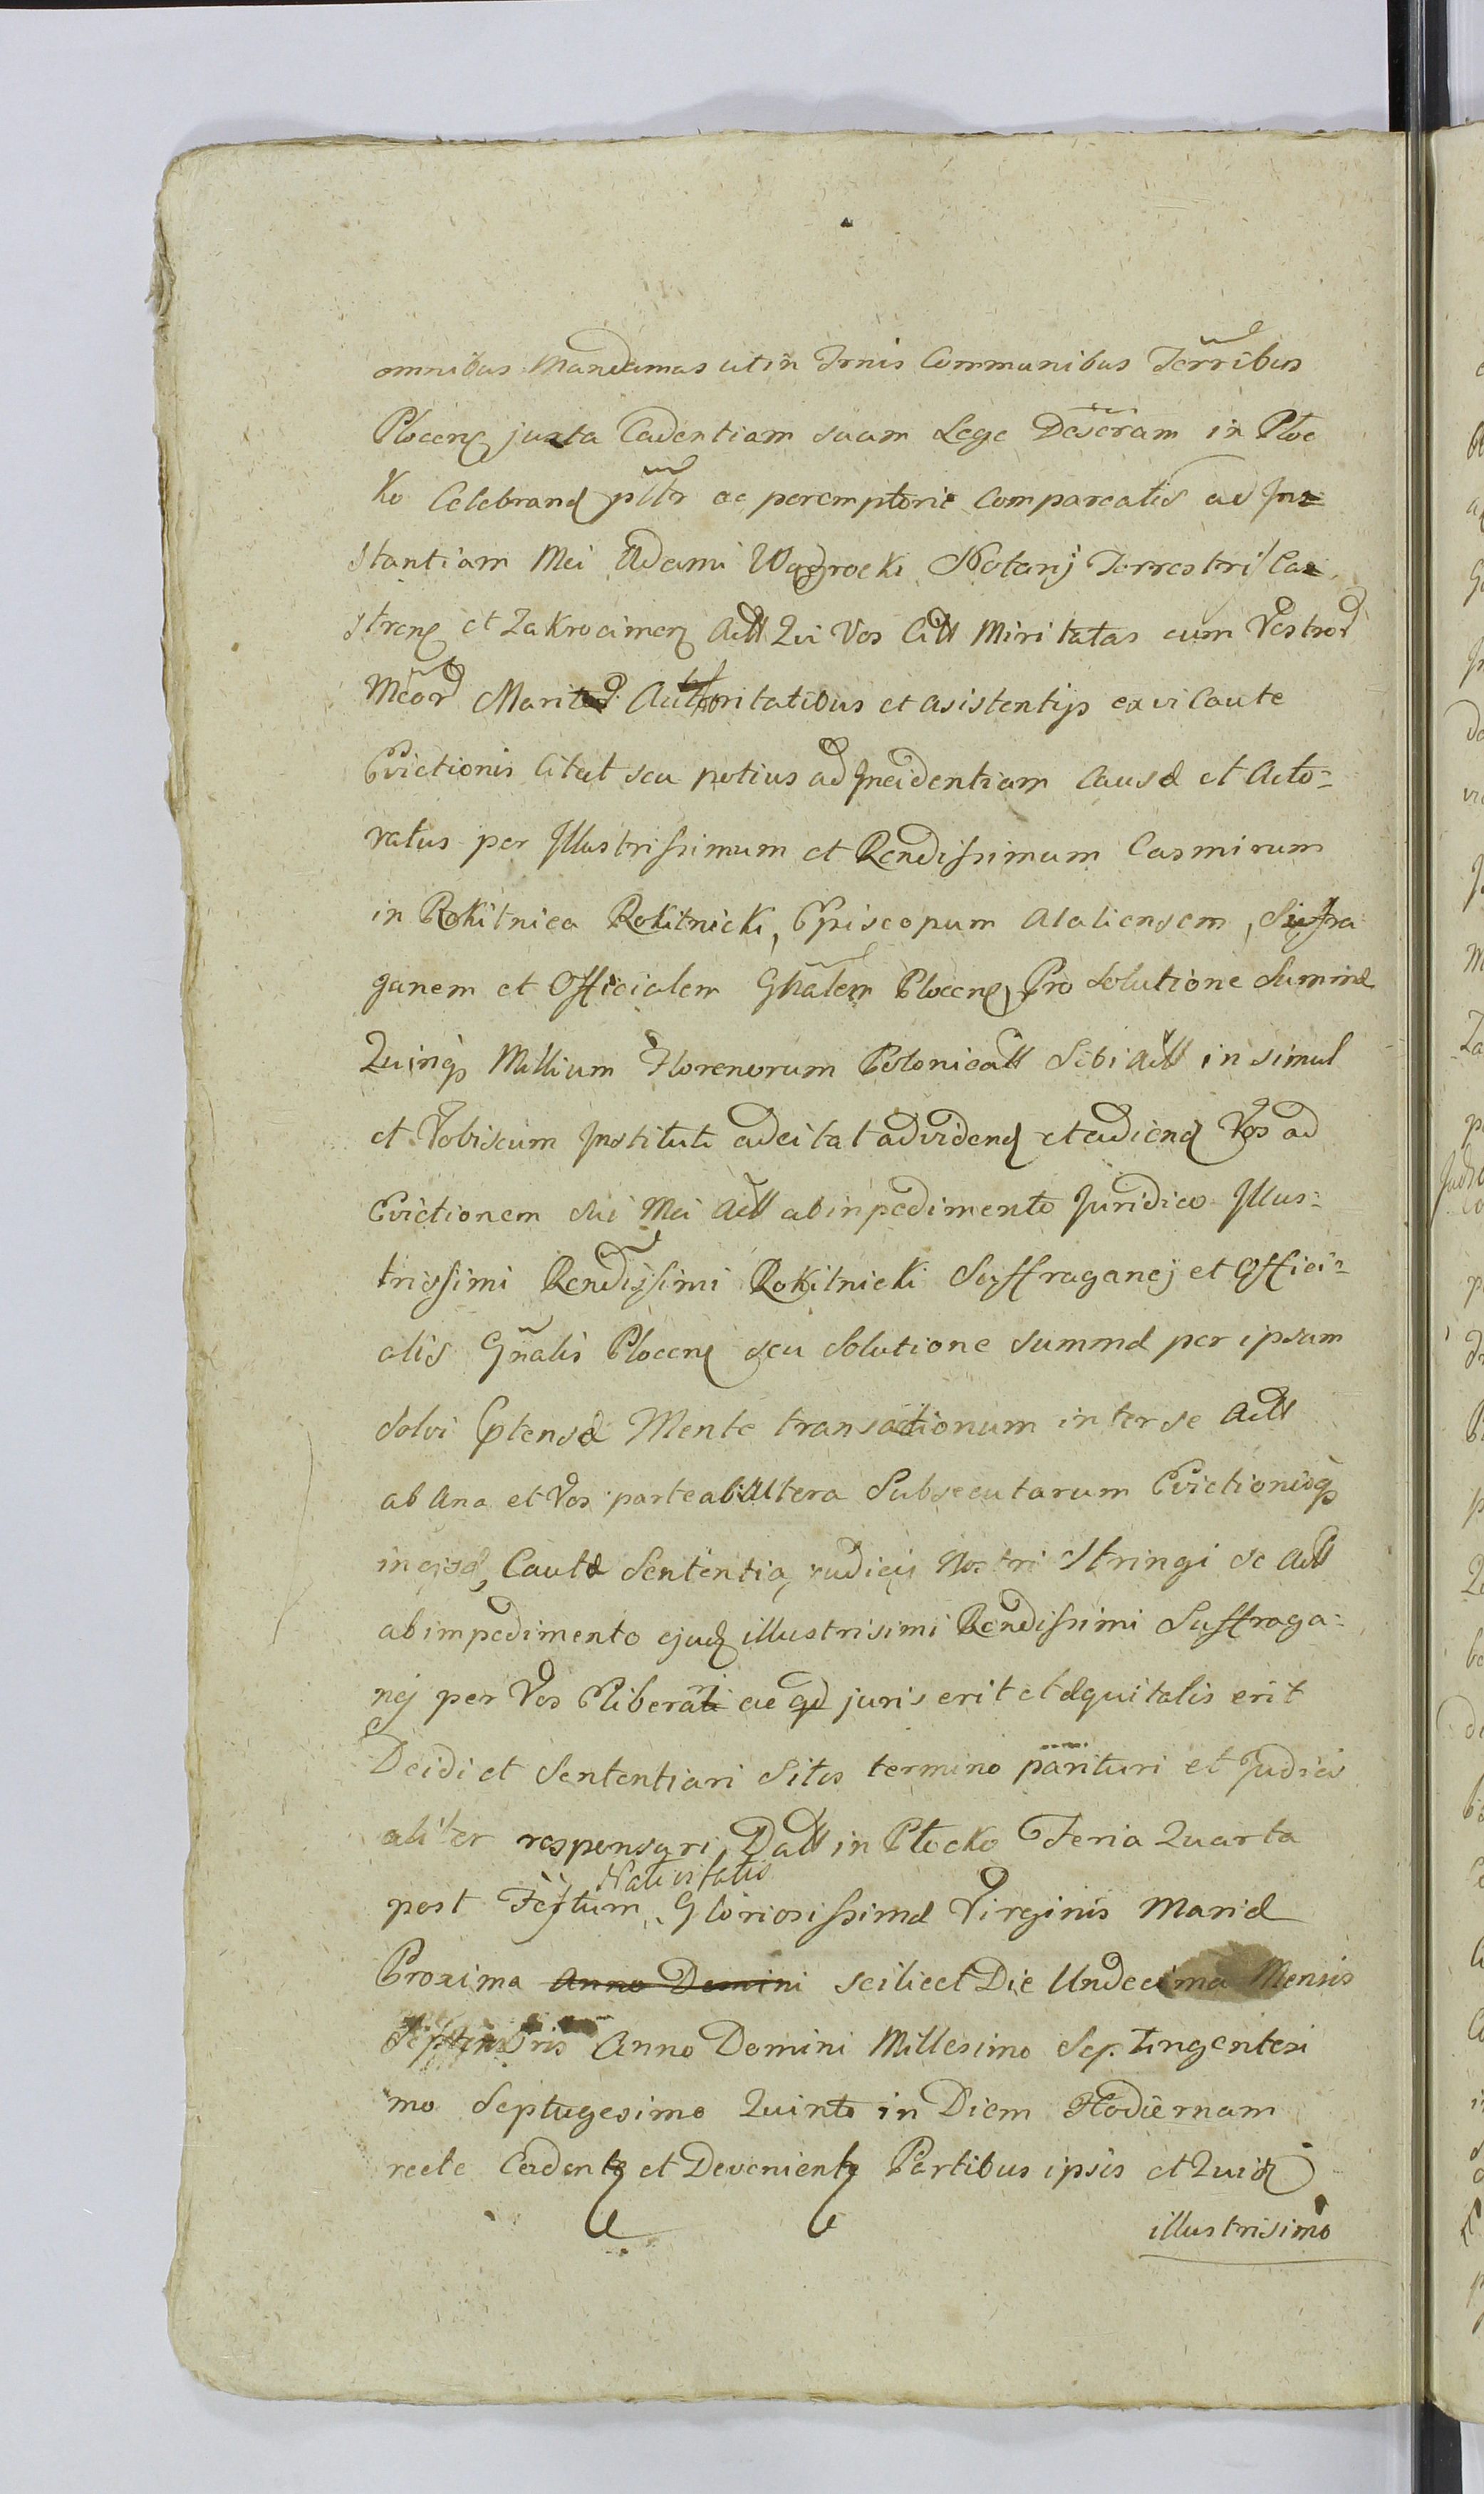 omnibus Mandamus ut in Trnis Communibus Terribus
Plocens juxta Cadentiam suam Lege Deseram in Ploc
ko Celebrand plltr ac peremptorie Compareatis ad Ins=
stantiam Mei Adami Wagrocki Notarij Terrestris Ca=
strens et Zakrocimen Actt Qui Vos Citt Miritatas cum Vestror
Meor Maritor Authoritatibus et asistentijs ex vi Caute
Evictionis Citat seu potius ad Incidentiam Causæ et Acto=
ratus per Illustrissimum et Rendissimum Casmirum
in Rokitnica Rokitnicki, Episcopum Alaliensem, Suffra
ganem et Officialem Gnalem Plocens, Pro Solutione Summæ
Quinqs Millium Florenorum Polonicall Sibi Actt in simul
et Vobiscum Instituti adcitat ad videnq et audienq Vos ad
Evictionem Sui Mei Actt ab inpedimento Juridico Illus=
trissimi Rendissimi Rokitnicki Suffraganej et Offici=
alis Gnalis Plocens seu Solutione Summæ per ipsum
Solvi Ptensæ Mente transactionum inter se Actt
ab Una et Vos parte ab Altera Subsecutarum Evictionisqs
in ejsd, Cautæ Sententia, judicij Nostri Stringi se Actt
ab impedimento ejusd illustrisimi Rendissimi Suffraga=
nej per Vos Eliberari ac qd juris erit et æquitatis erit
Decidi et Sententiari Sitis termino parituri et Judicis
aliter responsuri, Datt in Płocko Feria Quarta
post Festum Nativitatis Gloriosissimæ Virginis Mariæ
Proxima Anno Domini scilicet Die Undecima Mensis
Septembris Anno Domini Millesimo Septingentesi
mo Septugesimo Quinto in Diem Hodiernam
recte Cadente et Deveniente Partibus ipsis et Quid
illustrisimo